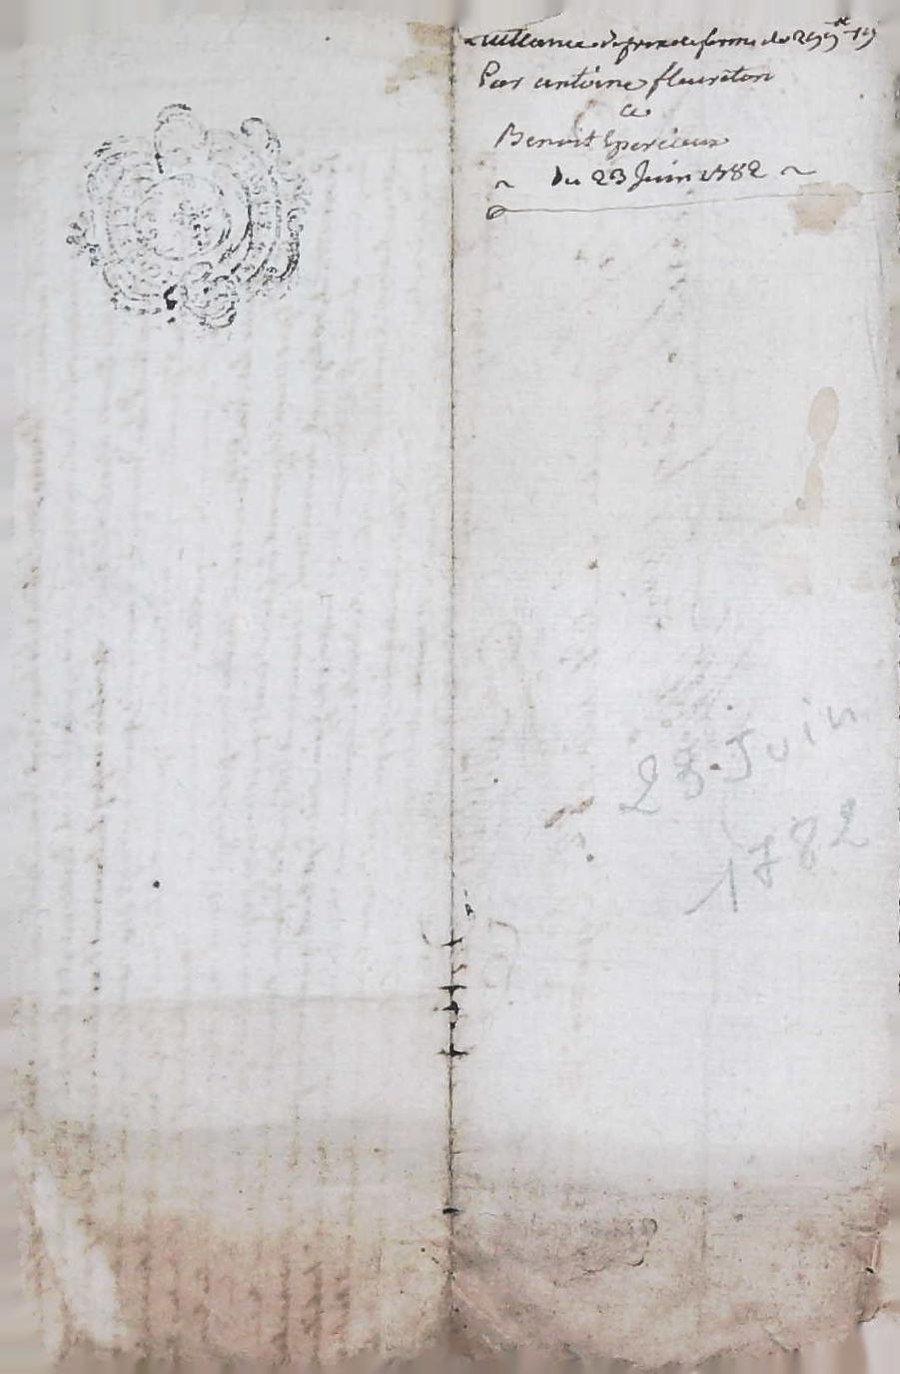 quittance de prix de ferme de 299lt 19
Par antoine fleureton
a
Benoit Epercieux
~ Du 23 Juin 1782 ~
23 Juin
1782